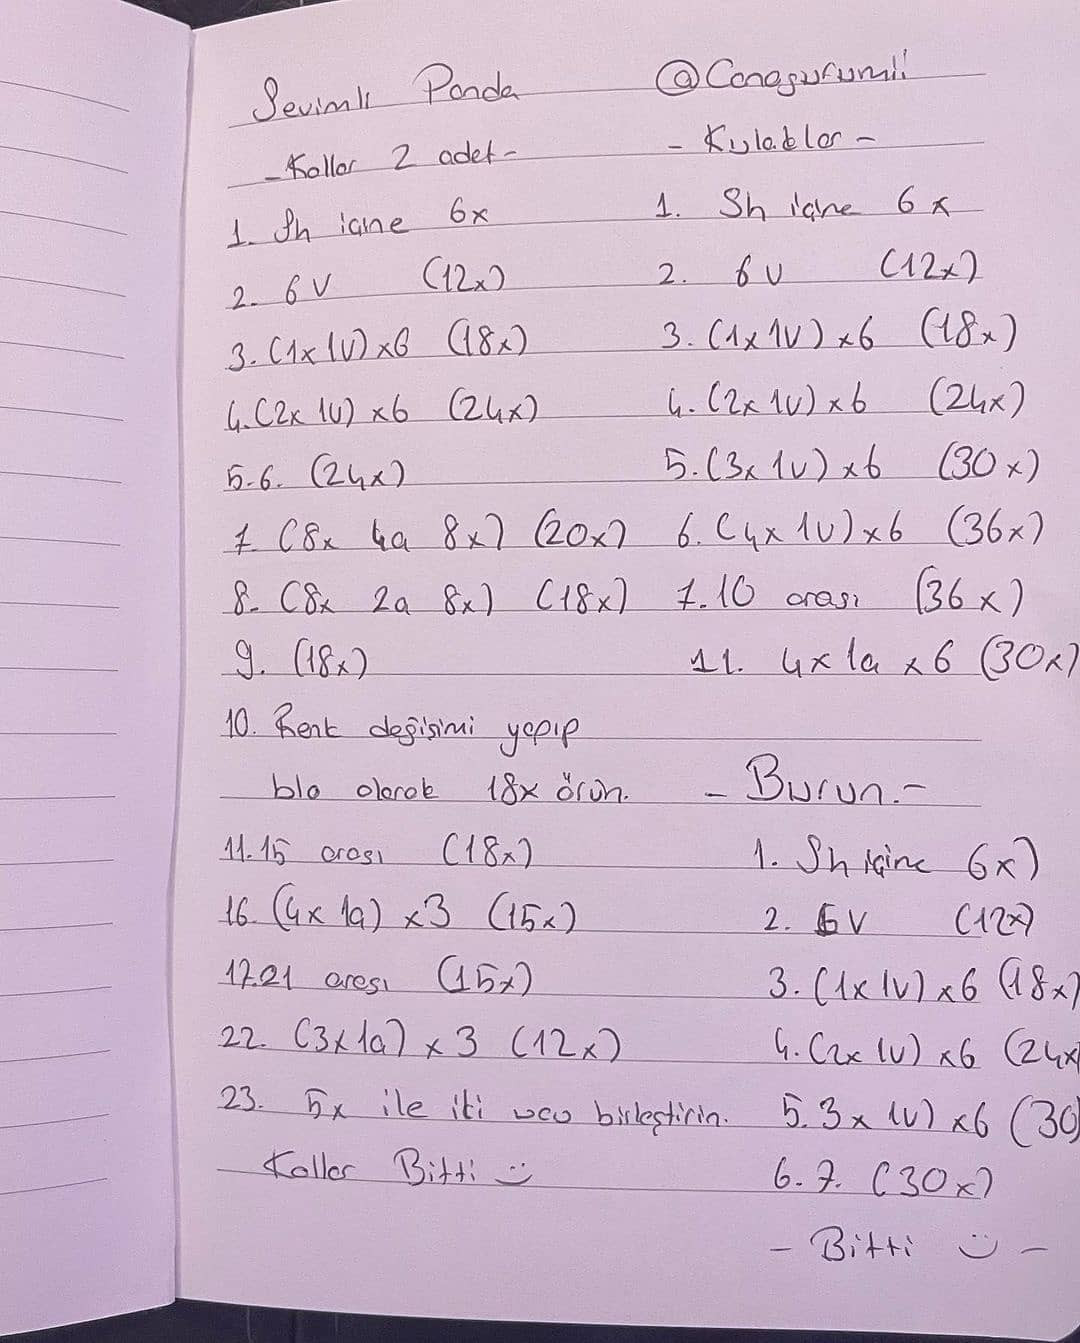 Sevimli Panda
-Kollar 2 adet-
1. Sh içine 6x
2. 6V (12x)
3. (1x 1V) x6 (18x)
4. (2x 1V) x6 (24x)
5-6. (24x)
7. (8x 4a 8x) (20x)
8. (8x 2a 8x) (18x)
9. (18x)
10. Renk değişimi yapıp
blo olarak 18x örün.
11.15 arası (18x)
16. (4x 1a) x3 (15x)
17.21 arası (15x)
22. (3x 1a) x 3 (12x)
23. 5x ile iki ucu birleştirin.
Kollar Bitti :)
@Canagurumii
- Kulaklar -
1. Sh içine 6x
2. 6V (12x)
3. (1x 1V) x6 (18x)
4. (2x 1V) x6 (24x)
5. (3x 1V) x6 (30x)
6. (4x 1V) x6 (36x)
7.10 arası (36x)
11. 4x 1a x6 (30x)
- Burun.-
1. Sh içine 6x)
2. 6V (12x)
3. (1x 1V) x6 (18x)
4. (2x 1V) x6 (24x
5. 3x 1V) x6 (30
6.7. (30x)
- Bitti :) -